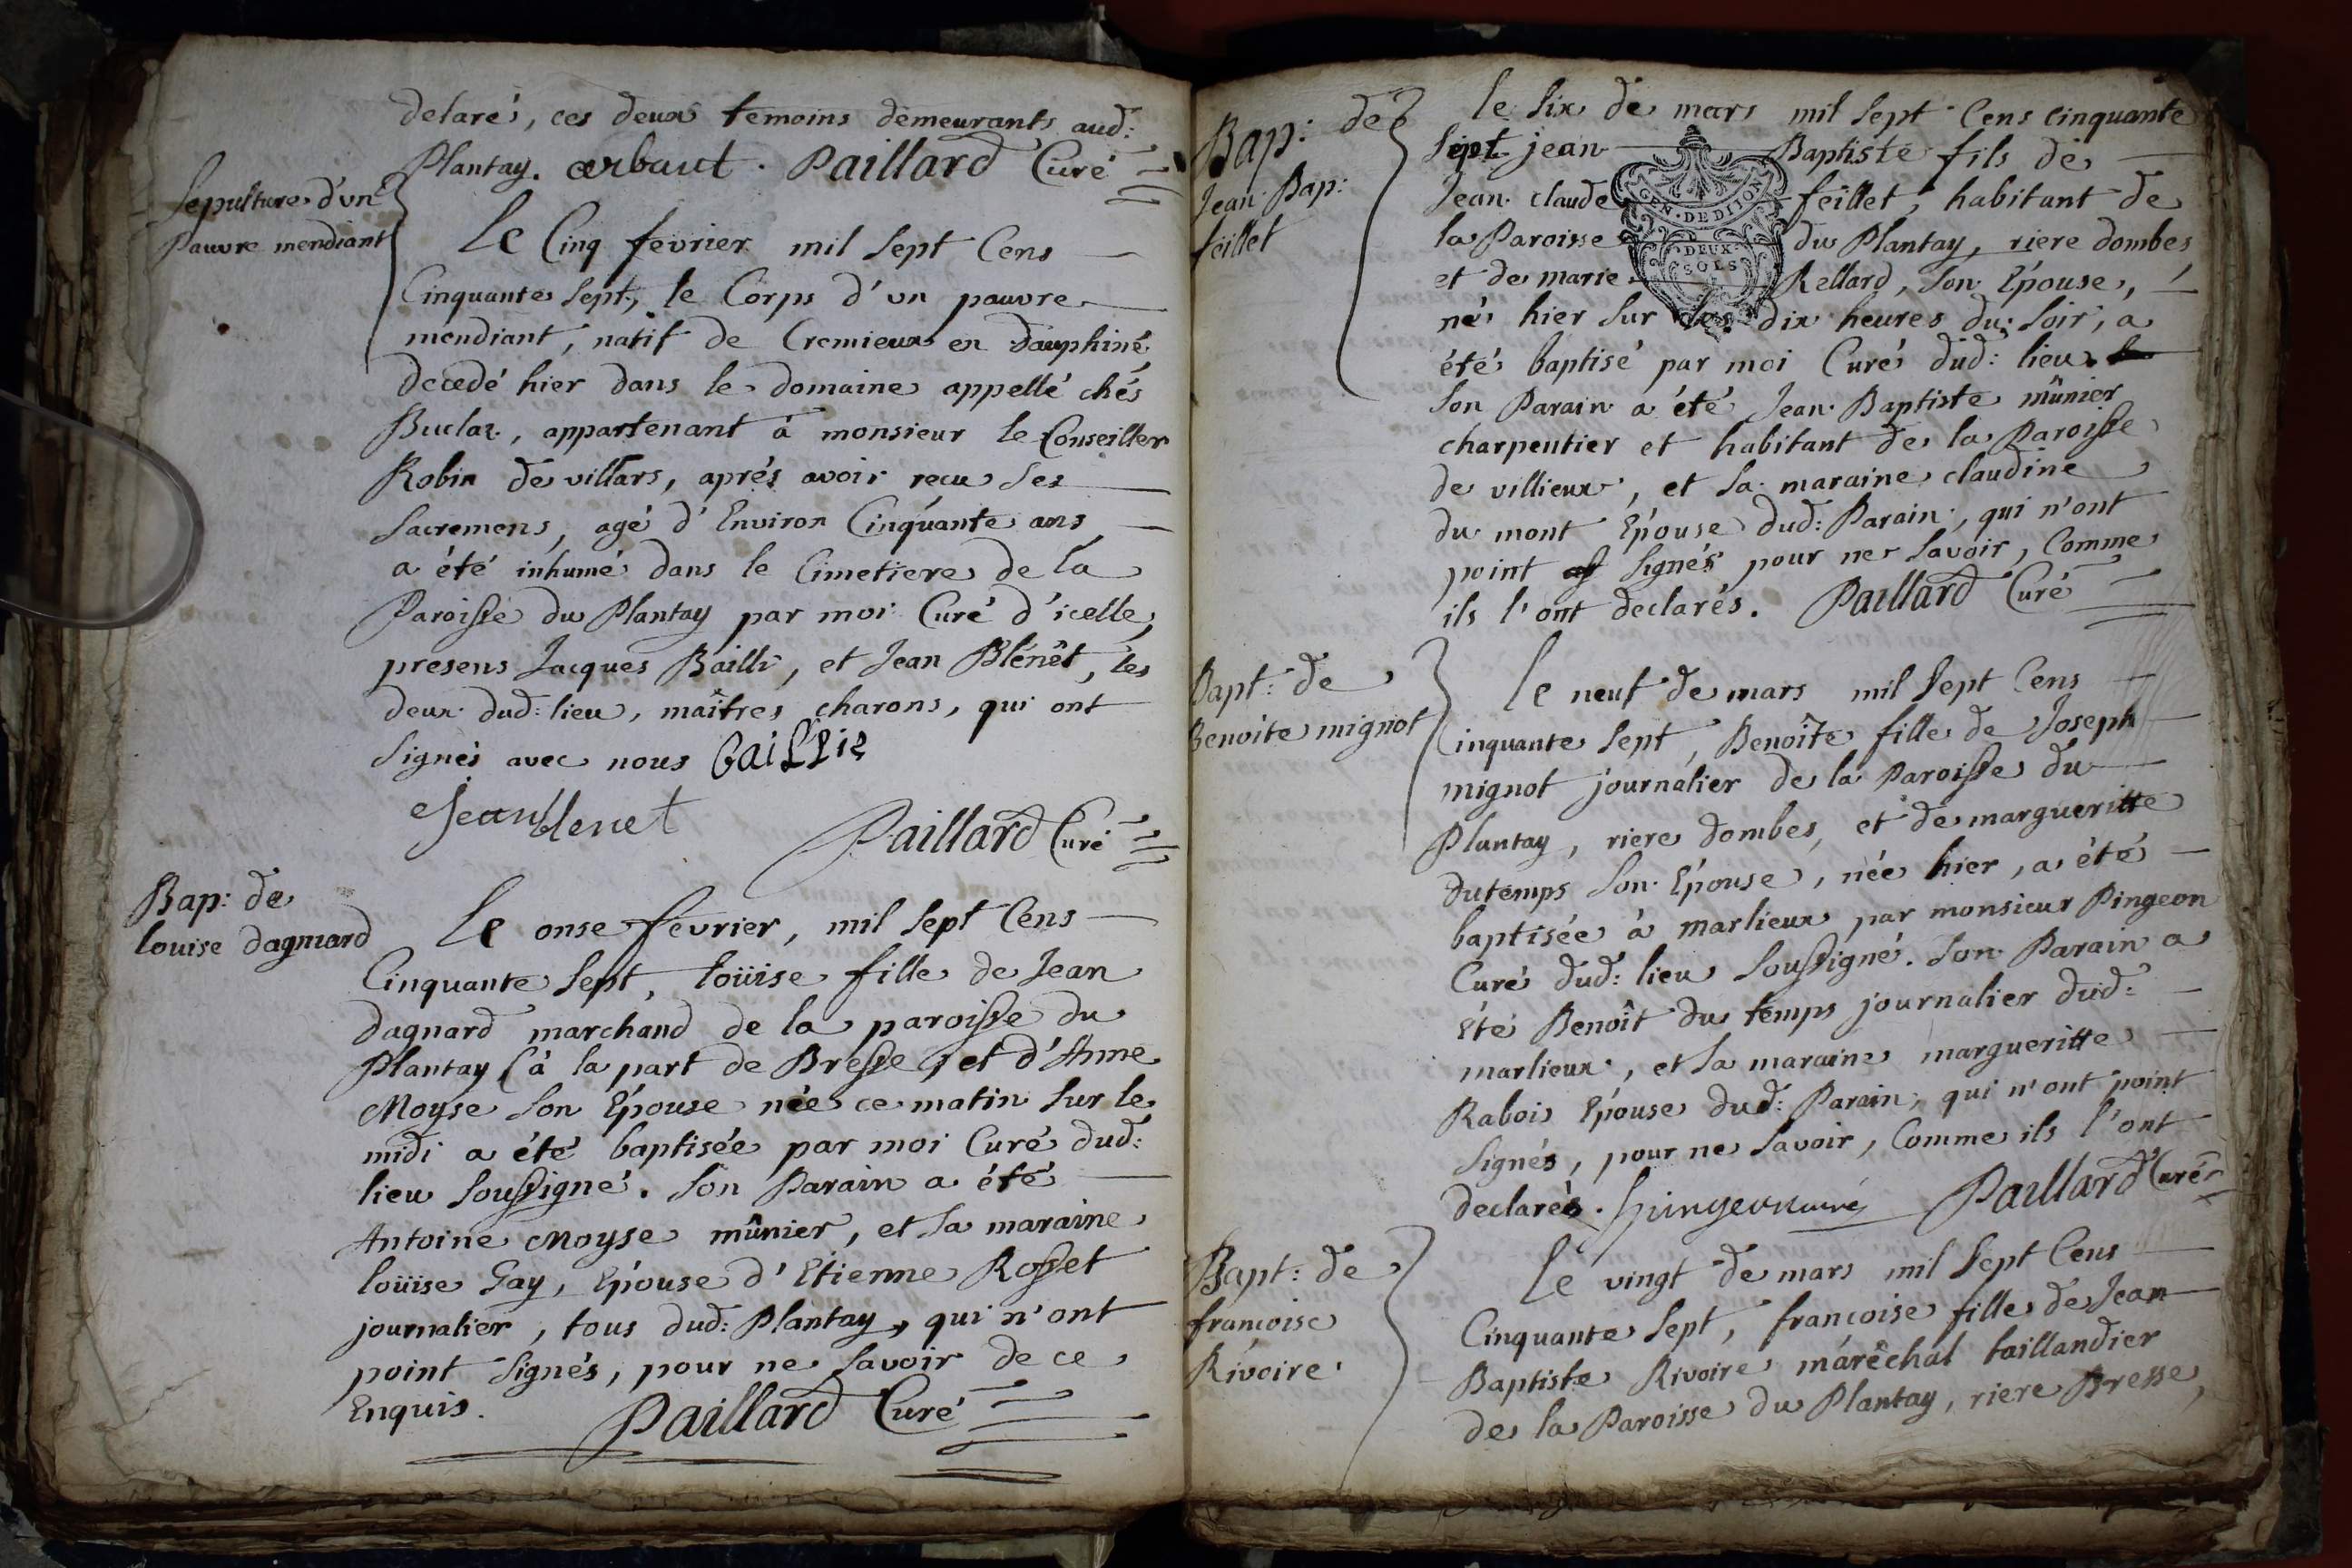 delaré, ces deux temoins demeurants aud:
Plantay. arbaut. Paillard Curé
Sepulture d'un
Pauvre mendiant
Le Cinq fevrier mil sept Cens
Cinquante sept, le Corps d'un pauvre
mendiant, natif de Cremieux en Dauphiné
decedé hier dans le domaine appellé chés
Buclar, appartenant à monsieur le Conseiller
Robin de villars, aprés avoir recu ses
sacremens, agé d'Environ Cinquante ans,
a été inhumé dans le Cimetiere de la
Paroisse du Plantay par moi Curé d'icelle,
presens Jacques Bailli, et Jean Blénêt, les
deux dud: lieu, maîtres charons, qui ont
signés avec nous baillie
Jean blenet
Paillard Curé
Bap: de
louise dagnard
Le onse fevrier, mil sept Cens
Cinquante sept, loüise fille de Jean
dagnard marchand de la paroisse du
Plantay (à la part de Bresse) et d'Anne
Moyse son Epouse née ce matin sur le
midi a été baptisée par moi Curé dud:
lieu soussigné. son Parain a été
Antoine Moyse mûnier, et sa maraine
loüise Gay, Epouse d'Etienne Rosset
journalier, tous dud: Plantay, qui n'ont
point signés, pour ne savoir de ce
Enquis. Paillard Curé
Bap: de
Jean Bap:
feillet
le six de mars mil sept Cens cinquante
sept jean Baptiste fils de
Jean claude feillet, habitant de
la Paroisse du Plantay, riere dombes
et de marie Rellard, son Epouse,
né hier sur les dix heures du soir, a
été baptisé par moi Curé dud: lieu.
son Parain a été Jean Baptiste mûnier
charpentier et habitant de la Paroisse
de villieux, et sa maraine claudine
du mont Epouse dud: Parain, qui n'ont
point signés pour ne savoir, Comme
ils l'ont declarés. Paillard Curé
GEN. DE DIJON
DEUX
SOLS
Bapt: de
Benoite mignot
Le neuf de mars mil sept Cens
Cinquante sept, Benoîte fille de Joseph
mignot journalier de la Paroisse du
Plantay, riere dombes, et de margueritte
dutemps son Epouse, née hier, a été
baptisée à marlieux par monsieur Pingeon
Curé dud: lieu soussigné. son Parain a
Eté Benoît du temps journalier dud:
marlieux, et sa maraine margueritte
Rabois Epouse dud: Parain, qui n'ont point
signés, pour ne savoir, Comme ils l'ont
declarés. pingeon curé Paillard Curé
Bapt: de
francoise
Rivoire
Le vingt de mars mil sept Cens
Cinquante sept, francoise fille de Jean
Baptiste Rivoire maréchal taillandier
de la Paroisse du Plantay, riere Bresse,